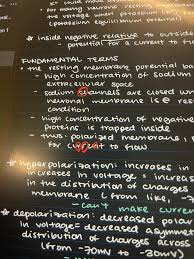 for having neuro
the voltage under
(potassium equilibrium potential)
* inside negative relative to outside
potential for a current to
FUNDAMENTAL TERMS
- the resting membrane potential ba
- high concentration of sodium
extracellular space
- sodium channels are closed wh
neuronal membrane is @ res
condition
- high concentration of negative
proteins is trapped inside
- thus, polarized membrane
for current to flow
* hyperpolarization: increases in
increases in voltage = increases
in the distribution of charges
membrane (from like, -7
- can't make curren
* depolarization: decreased polar
in voltage= decreased asymmet
distribution of charges across
(from -70mV to -30mV)